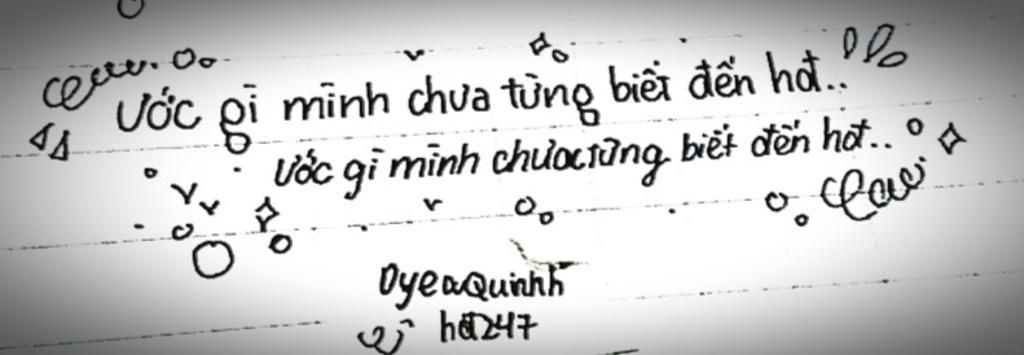 Ước gì mình chưa từng biết đến hđ..
Ước gì mình chưa từng biết đến hđ..
OyeaQuinhh
hđ247